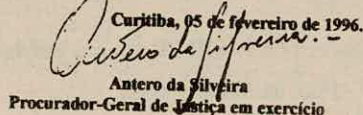 Curitiba, 05 de fevereiro de 1996.
Antero da Silveira.-
Antero da Silveira
Procurador-Geral de Justiça em exercício